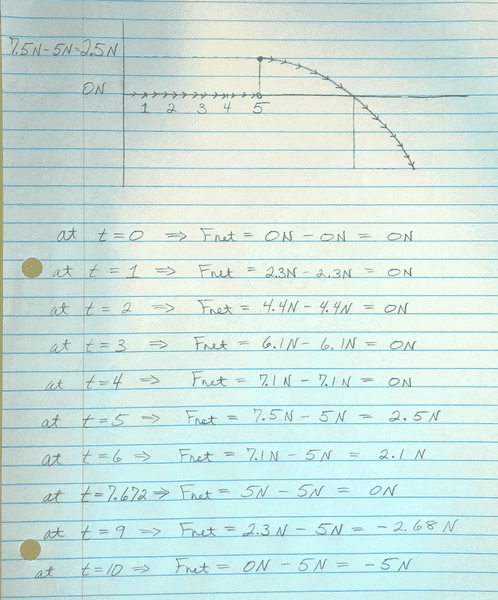 7.5N-5N=2.5N
0N
1 2 3 4 5
at t=0 ⇒ Fnet = 0N - 0N = 0N
at t = 1 ⇒ Fnet = 2.3N - 2.3N = 0N
at t = 2 ⇒ Fnet = 4.4N - 4.4N = 0N
at t = 3 ⇒ Fnet = 6.1N - 6.1N = 0N
at t=4 ⇒ Fnet = 7.1N - 7.1N = 0N
at t=5 ⇒ Fnet = 7.5N - 5N = 2.5N
at t=6 ⇒ Fnet = 7.1N - 5N = 2.1N
at t=7.672 ⇒ Fnet = 5N - 5N = 0N
at t = 9 ⇒ Fnet = 2.3N - 5N = -2.68N
at t=10 ⇒ Fnet = 0N - 5N = -5N